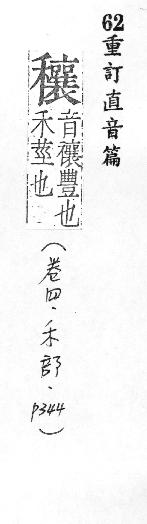 62重訂直音篇
穰
音穰豐也
禾莖也
(卷四、禾部、p344)